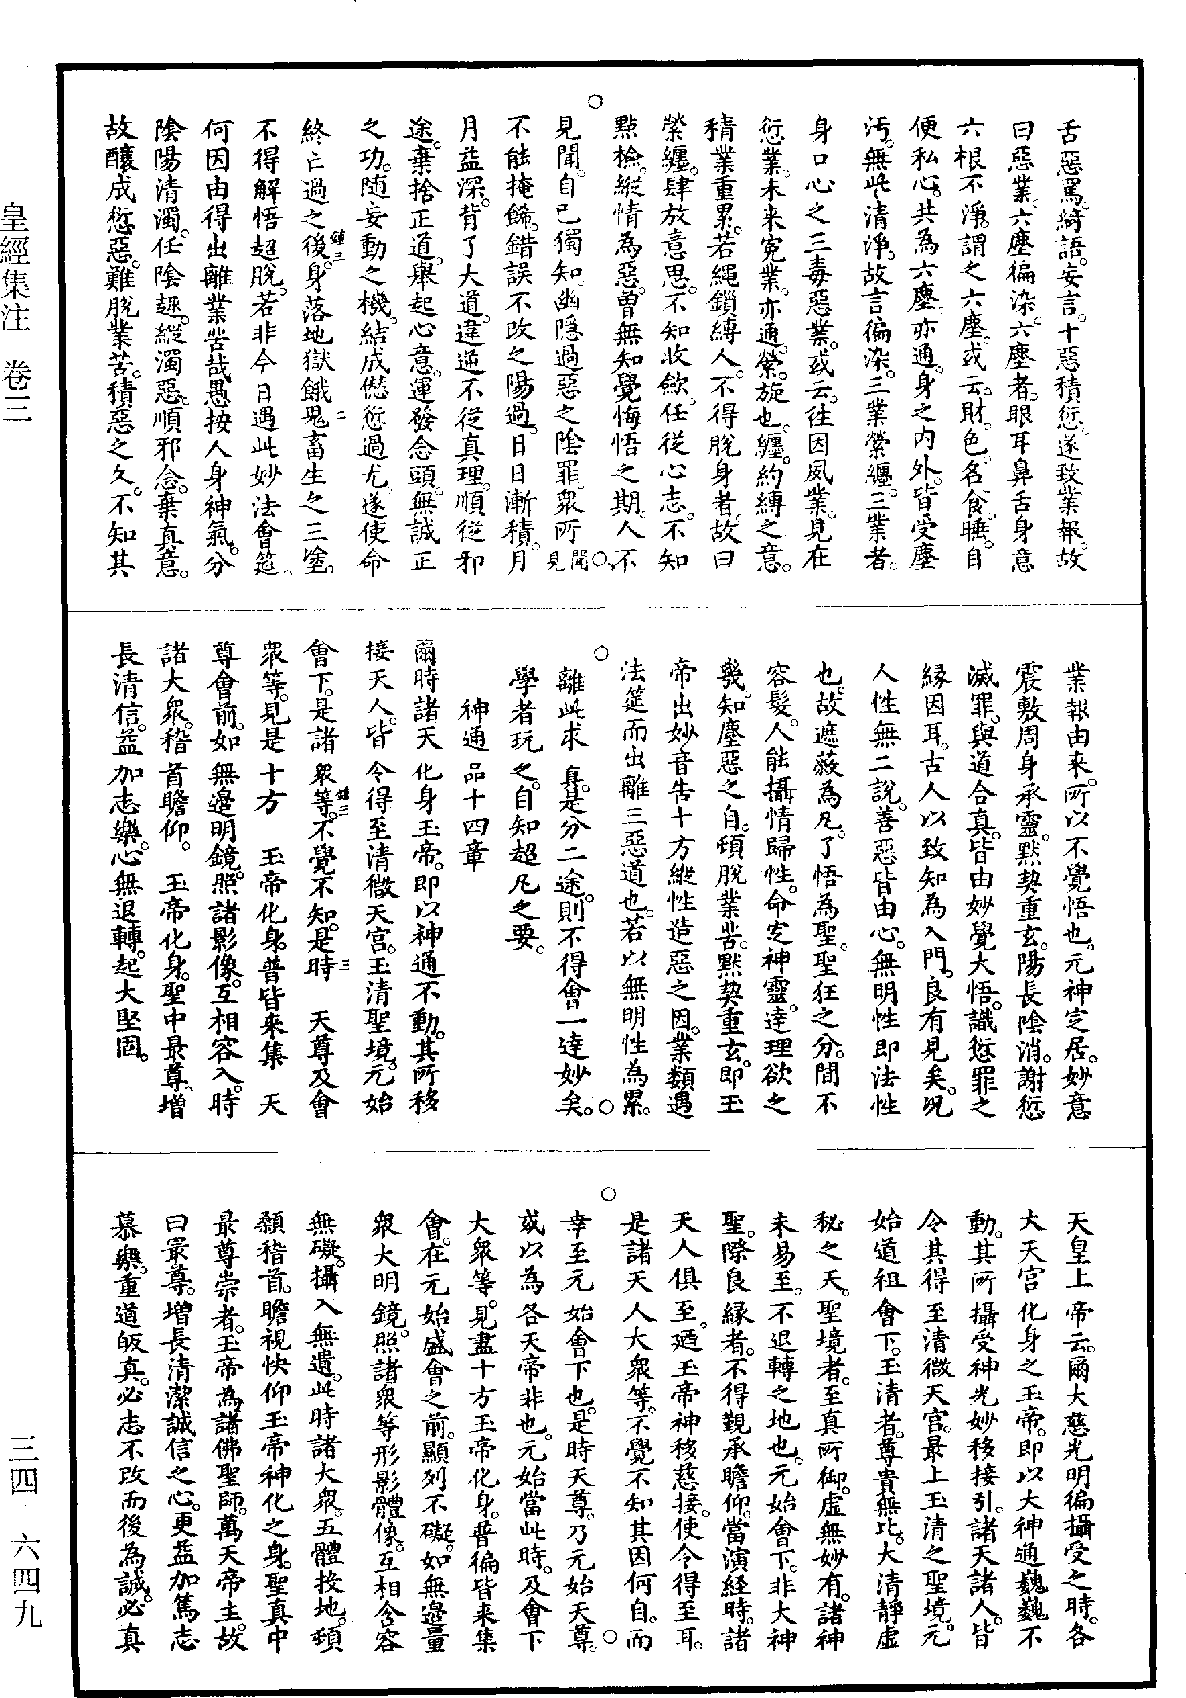 舌惡罵。綺語。妄言。十惡積愆。遂致業報。故
曰惡業。六塵徧染。六塵者。眼耳鼻舌身意
六根不淨。謂之六塵。或云。財。色。名。食。睡。自
便私心。共為六塵。亦通。身之內外。皆受塵
汚。無此清淨。故言徧染。三業縈纏。三業者。
身口心之三毒惡業。或云。往因風業。見在
愆業。未來冤業。亦通。縈。旋也。纏。約縛之意。
積業重累。若繩鎖縛人。不得脫身者。故曰
縈纏。肆放意思。不知收斂。任從心志。不知
點檢。縱情為惡。曾無知覺悔悟之期。人不
見聞。自己獨知。幽隱過惡之陰罪。眾所聞見
不能掩飾。錯誤不改之陽過。日日漸積。月
月益深。背了大道。違逆不從真理。順從邪
途。棄捨正道。舉起心意。運發念頭。無誠正
之功。隨妄動之機。結成愆過尤。遂使命
終亡過之後。身落地獄餓鬼畜生之三塗。
不得解悟超脫。若非今日遇此妙法會筵。
何因由得出離業苦哉。愚按人身神氣。分
陰陽清濁。任陰趣。縱濁惡。順邪念。棄真意。
故釀成愆惡。難脫業苦。積惡之久。不知其
業報由來。所以不覺悟也。元神定居。妙意
震敷。周身承靈。默契重玄。陽長陰消。謝愆
滅罪。與道合真。皆由妙覺大悟。識愆罪之
緣因耳。古人以致知為入門。良有見矣。況
人性無二說。善惡皆由心。無明性即法性
也。故遮蔽為凡。了悟為聖。聖狂之分。間不
容髮。人能攝情歸性。命定神靈。達理欲之
幾。知塵惡之自。頓脫業苦。默契重玄。即玉
帝出妙音告十方縱性造惡之因。業類遇
法筵而出離三惡道也。若以無明性為累。
離此求真。是分二途。則不得會一達妙矣。
學者玩之。自知超凡之要。
神通品十四章
爾時諸天化身玉帝。即以神通不動。其所移
接天人。皆令得至清微天宮。玉清聖境。元始
會下。是諸眾等。不覺不知。是時天尊及會
眾等。見是十方玉帝化身。普皆來集天
尊會前。如無邊明鏡。照諸影像。互相容入。時
諸大眾。稽首瞻仰。玉帝化身。聖中最尊。增
長清信。益加志樂。心無退轉。起大堅固。
天皇上帝云。爾大慈光明徧攝受之時。各
大天宮化身之玉帝。即以大神通巍巍不
動。其所攝受神光妙移接引。諸天諸人。皆
令其得至清微天宮。最上玉清之聖境。元
始道祖會下。玉清者。尊貴無比。大清靜虛
秘之天。聖境者。至真所御。虛無妙有。諸神
未易至。不退轉之地也。元始會下。非大神
聖。際良緣者。不得覲承瞻仰。當演經時。諸
天人俱至。迺玉帝神移慈接。使令得至耳。
是諸天人大眾等。不覺不知其因何自。而
幸至元始會下也。是時天尊。乃元始天尊。
或以為各天帝非也。元始當此時。及會下
大眾等。見盡十方玉帝化身。普徧皆來集
會。在元始盛會之前。顯列不礙。如無邊量
眾大明鏡。照諸眾等形影體像。互相含容
無礙。攝入無遺。此時諸大眾。五體投地。頓
顙稽首。瞻視快仰玉帝神化之身。聖真中
最尊崇者。玉帝為諸佛聖師。萬天帝主。故
曰最尊。增長清潔誠信之心。更益加篤志
慕樂。重道皈真。必志不改而後為誠。必真
皇經集注 卷三
三四 六四九